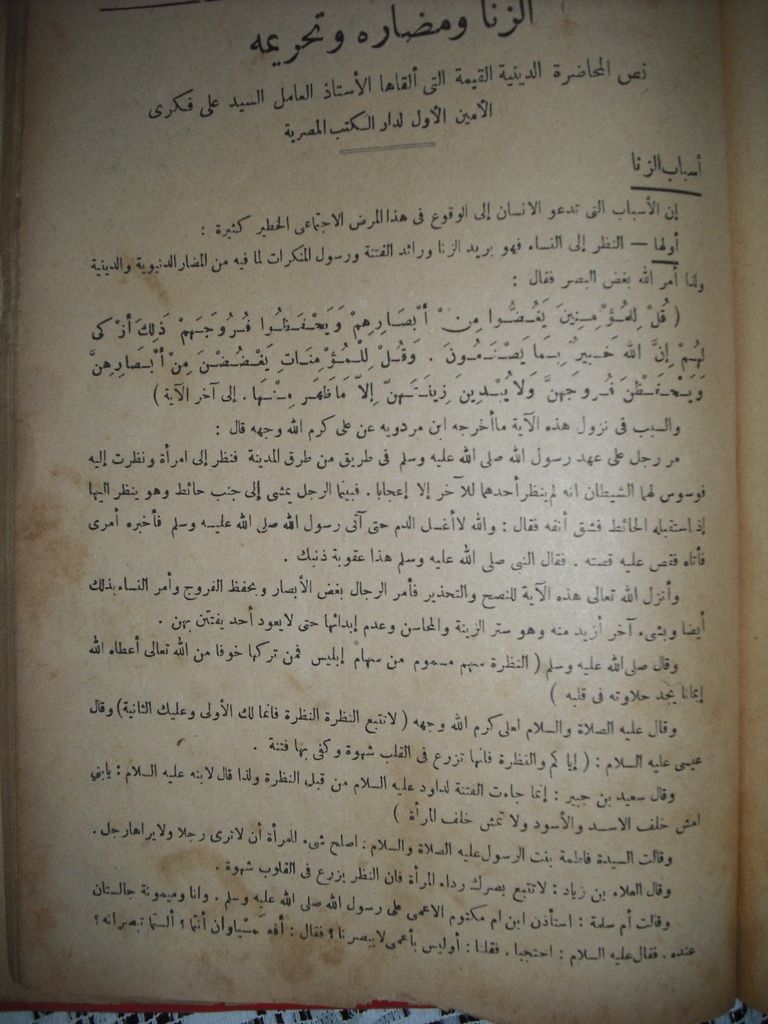 الزنا ومضاره وتحريمه
نص المحاضرة الدينية القيمة التى ألقاها الأستاذ العامل السيد على فكرى
الأمين الأول لدار الكتب المصرية
أسباب الزنا
إن الأسباب التى تدعو الانسان إلى الوقوع فى هذا المرض الاجتماعى الخطير كثيرة :
أولها — النظر إلى النساء فهو بريد الزنا ورائد الفتنة ورسول المنكرات لما فيه من المضار الدنيوية والدينية
ولذا أمر الله بغض البصر فقال :
( قُلْ لِلمُؤْمِنِينَ يَغُضُّوا مِنْ أَبْصَارِهِمْ وَيَحْفَظُوا فُرُوجَهُمْ ذَلِكَ أَزْكَى
لهُمْ إِنَّ اللهَ خَبِيرٌ بِمَا يَصْنَعُونَ . وَقُلْ لِلْمُؤْمِنَاتِ يَغْضُضْنَ مِنْ أَبْصَارِهِنَّ
وَيَحْفَظْنَ فُرُوجَهُنَّ وَلَا يُبْدِينَ زِينَتَهُنَّ إِلاَّ مَا ظَهَرَ مِنْهَا . إلى آخر الآية )
والسبب فى نزول هذه الآية ماأخرجه ابن مردويه عن على كرم الله وجهه قال :
مر رجل على عهد رسول الله صلى الله عليه وسلم فى طريق من طرق المدينة فنظر إلى امرأة ونظرت إليه
فوسوس لهما الشيطان انه لم ينظر أحدهما للآخر إلا إعجابا . فبينما الرجل يمشى إلى جنب حائط وهو ينظر اليها
إذ استقبله الحائط فشق أنفه فقال : والله لاأغسل الدم حتى آتى رسول الله صلى الله عليه وسلم فأخبره أمرى
فأتاه فقص عليه قصته . فقال النبى صلى الله عليه وسلم هذا عقوبة ذنبك .
وأنزل الله تعالى هذه الآية للنصح والتحذير فأمر الرجال بغض الأبصار وبحفظ الفروج وأمر النساء بذلك
أيضا وبشىء آخر أزيد منه وهو ستر الزينة والمحاسن وعدم إبدائها حتى لايعود أحد يفتتن بهن .
وقال صلى الله عليه وسلم ( النظرة سهم مسموم من سهام إبليس فمن تركها خوفا من الله تعالى أعطاه الله
إيمانا يجد حلاوته فى قلبه )
وقال عليه الصلاة والسلام لعلى كرم الله وجهه ( لاتتبع النظرة النظرة فانما لك الأولى وعليك الثانية) وقال
عيسى عليه السلام : ( إياكم والنظرة فانها تزرع فى القلب شهوة وكفى بها فتنة .
وقال سعيد بن جبير : إنما جاءت الفتنة لداود عليه السلام من قبل النظرة ولذا قال لابنه عليه السلام : يابنى
امش خلف الاسد والأسود ولا تمش خلف المرأة )
وقالت السيدة فاطمة بنت الرسول عليه الصلاة والسلام : اصلح شىء للمرأة أن لاترى رجلا ولايراها رجل .
وقال العلاء بن زياد : لاتتبع بصرك رداء المرأة فان النظر يزرع فى القلوب شهوة .
وقالت أم سلمة : استأذن ابن ام مكتوم الاعمى على رسول الله صلى الله عليه وسلم . وانا وميمونة جالستان
عنده . فقال عليه السلام : احتجبا . فقلنا : أوليس بأعمى لايبصرنا ؟ فقال : أفعمياوان أنتما ؟ ألستما تبصرانه ؟